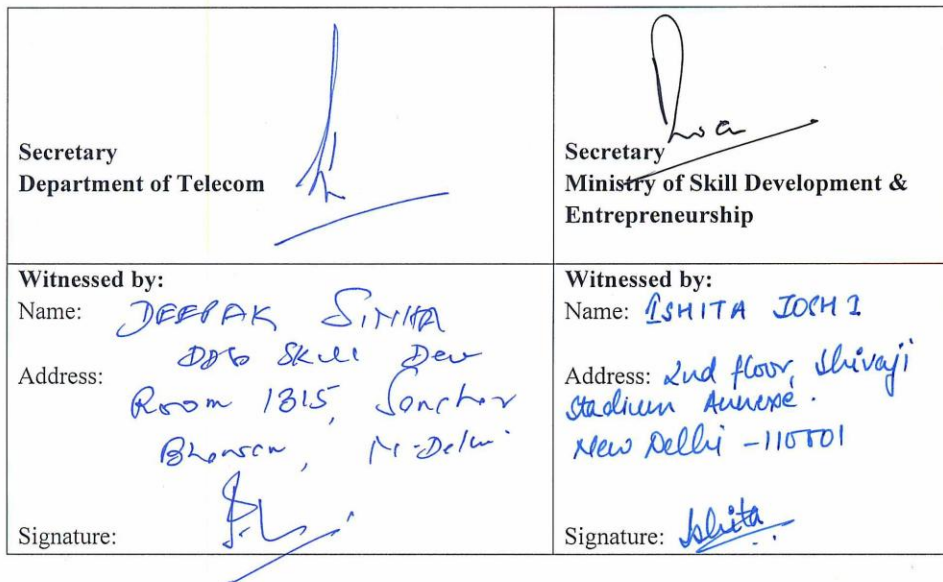 Secretary
Department of Telecom
Secretary
Ministry of Skill Development &
Entrepreneurship
Witnessed by:
Name: DEEPAK SINHA
DDG Skill Dev
Address:
Room 1315, Sanchar
Bhawan, N-Delhi
Signature:
Witnessed by:
Name: ISHITA JOSHI
Address: 2nd floor, Shivaji
Stadium Annexe.
New Delhi - 110001
Signature: Ishita